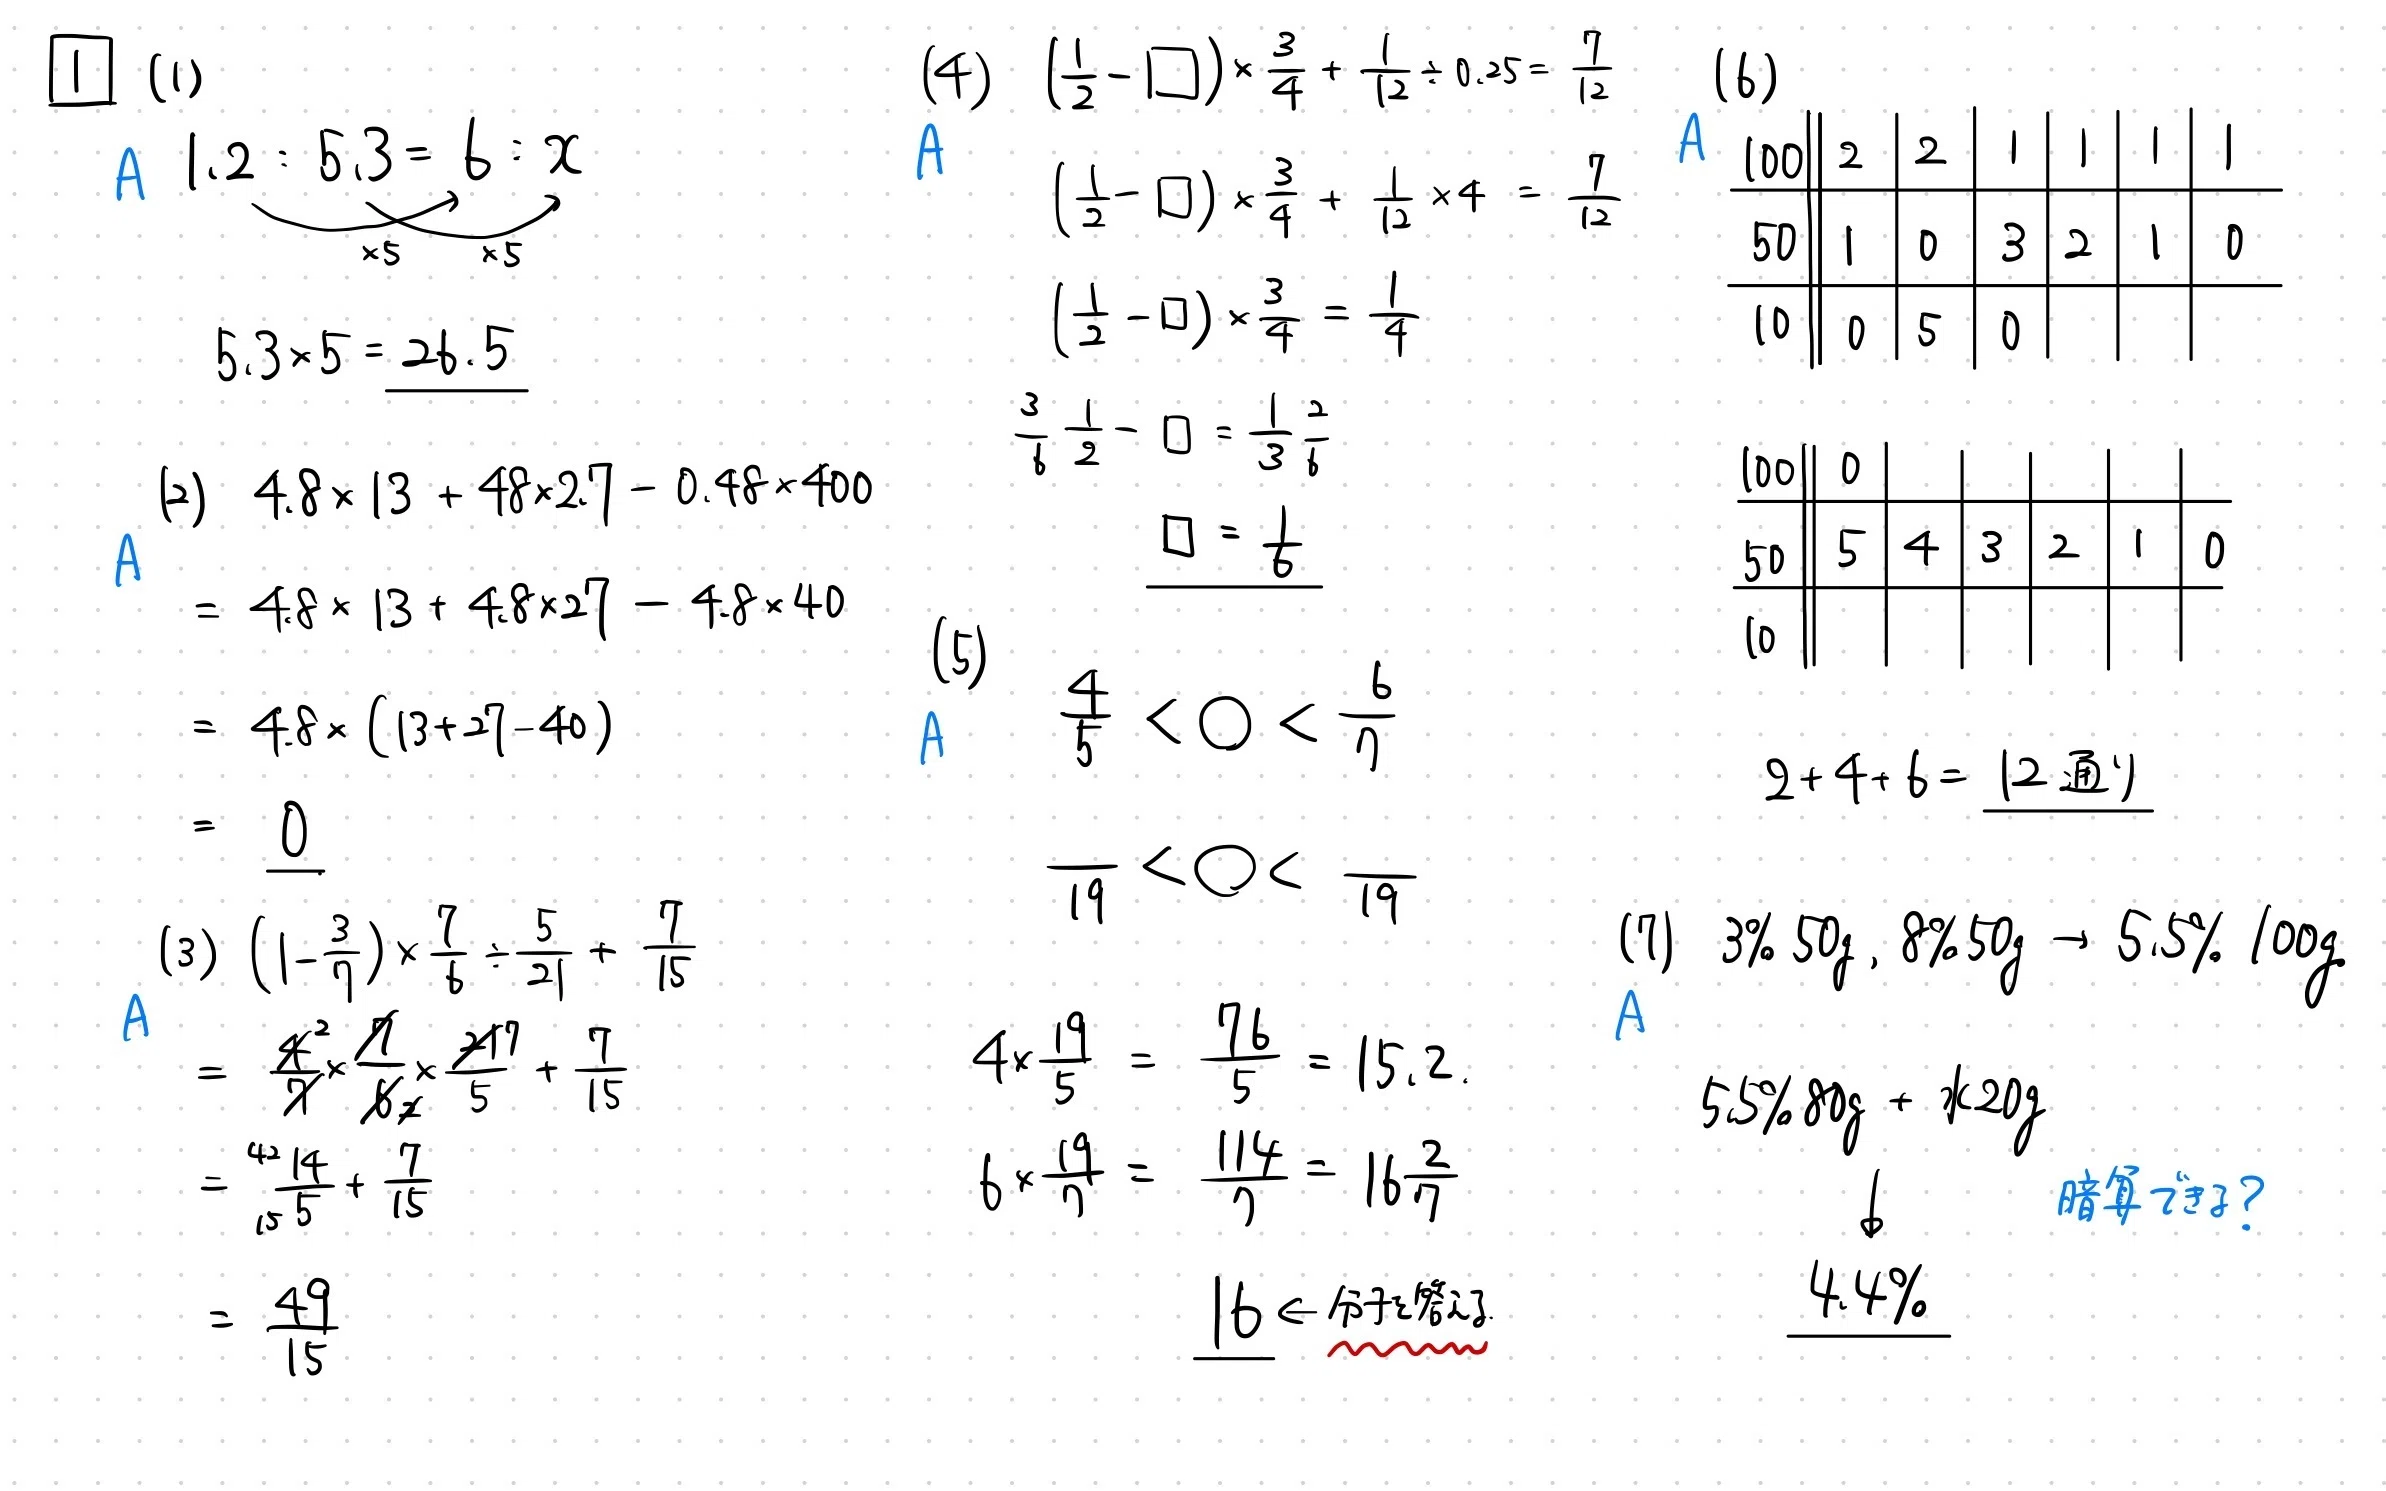 1 (1)
A 1.2 : 5.3 = 6 : x
×5 ×5
5.3×5 = 26.5
(2) 4.8×13 + 48×2.7 - 0.48×400
A
= 4.8×13 + 4.8×27 - 4.8×40
= 4.8×(13+27-40)
= 0
(3) (1-3/7)×7/6÷5/21 + 7/15
A
= 4/7 2 ×7/6 2 ×21/5 7 + 7/15
= 42/15 14/5 + 7/15
= 49/15
(4) (1/2-□)×3/4 + 1/12÷0.25 = 7/12
A
(1/2-□)×3/4 + 1/12×4 = 7/12
(1/2-□)×3/4 = 1/4
3/6 1/2 - □ = 1/3 2/6
□ = 1/6
(5)
A
4/5 < ○ < 6/7
/19 < ○ < /19
4×19/5 = 76/5 = 15.2.
6×19/7 = 114/7 = 16 2/7
16 ← 分子を答える.
(6)
A
100 2 2 1 1 1 1
50 1 0 3 2 1 0
10 0 5 0
100 0
50 5 4 3 2 1 0
10
2+4+6 = 12通り
(7) 3% 50g, 8% 50g → 5.5% 100g
A
5.5% 80g + 水20g
↓
暗算できる?
4.4%